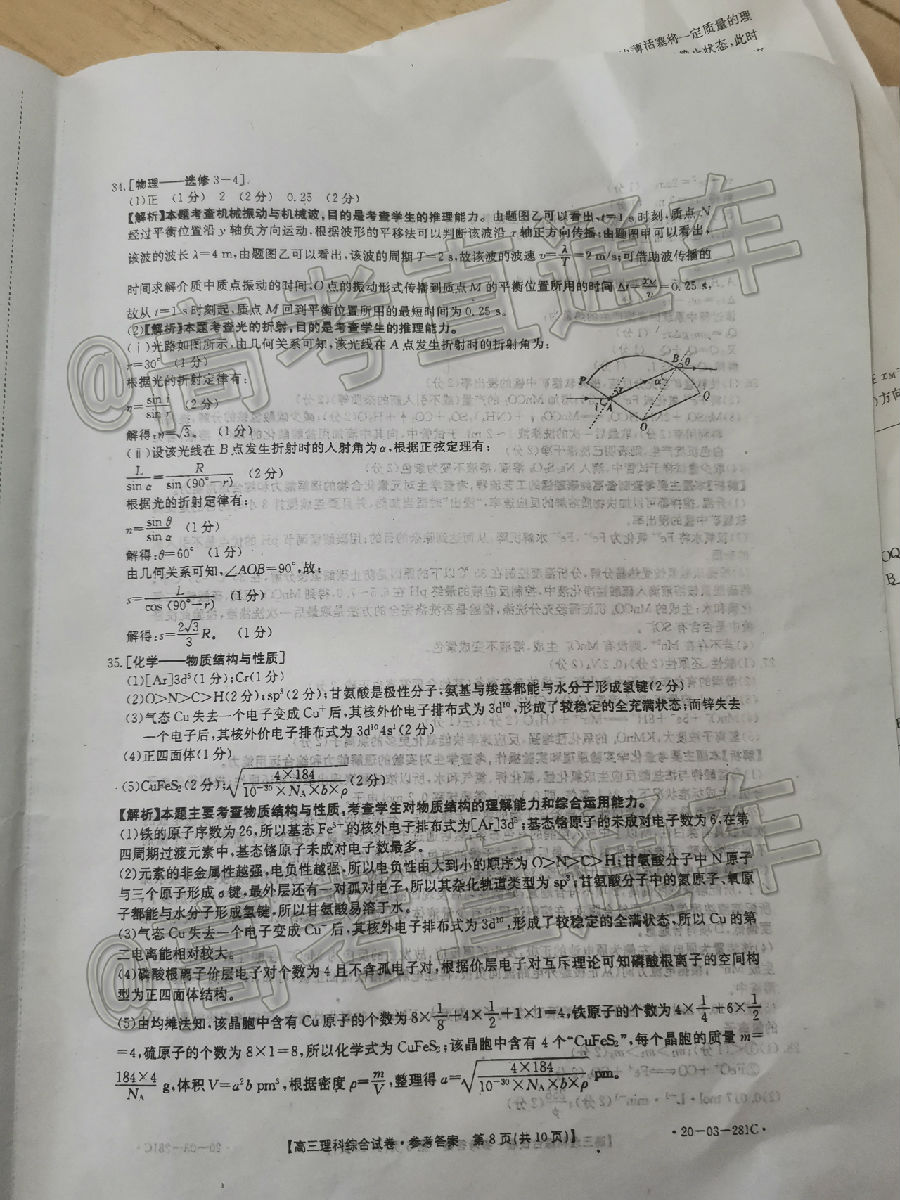 的薄活塞将一定质量的理
状态,此时
34.[物理——选修3-4].
(1)正 (1分) 2 (2分) 0.25 (2分)
【解析】本题考查机械振动与机械波,目的是考查学生的推理能力。由题图乙可以看出,t=1 s时刻,质点N
经过平衡位置沿y轴负方向运动,根据波形的平移法可以判断该波沿x轴正方向传播;由题图甲可以看出,
该波的波长λ=4 m,由题图乙可以看出,该波的周期T=2 s,故该波的波速v=λ/T=2 m/s;可借助波传播的
时间求解介质中质点振动的时间,O点的振动形式传播到质点M的平衡位置所用的时间Δt=Δx/v=0.25 s,
故从t=1 s时刻起,质点M回到平衡位置所用的最短时间为0.25 s。
(2)【解析】本题考查光的折射,目的是考查学生的推理能力。
(ⅰ)光路如图所示,由几何关系可知,该光线在A点发生折射时的折射角为:
r=30° (1分)
根据光的折射定律有:
n=sin i/sin r (2分)
解得:n=√3。 (1分)
(ⅱ)设该光线在B点发生折射时的入射角为α,根据正弦定理有:
L/sin α=R/sin (90°-r) (2分)
根据光的折射定律有:
n=sin θ/sin α (1分)
解得:θ=60° (1分)
由几何关系可知,∠AOB=90°,故:
s=L/cos (90°-r) (1分)
解得:s=2√3/3 R。 (1分)
P
B
θ
α
A
r
i
Q
O
35.[化学——物质结构与性质]
(1)[Ar]3d⁵(1分);Cr(1分)
(2)O>N>C>H(2分);sp³(2分);甘氨酸是极性分子;氨基与羧基都能与水分子形成氢键(2分)
(3)气态Cu失去一个电子变成Cu⁺后,其核外价电子排布式为3d¹⁰,形成了较稳定的全充满状态;而锌失去
一个电子后,其核外价电子排布式为3d¹⁰4s¹(2分)
(4)正四面体(1分)
(5)CuFeS₂(2分);√(4×184/(10⁻³⁰×N_A×b×ρ))(2分)
【解析】本题主要考查物质结构与性质,考查学生对物质结构的理解能力和综合运用能力。
(1)铁的原子序数为26,所以基态Fe³⁺的核外电子排布式为[Ar]3d⁵;基态铬原子的未成对电子数为6,在第
四周期过渡元素中,基态铬原子未成对电子数最多。
(2)元素的非金属性越强,电负性越强,所以电负性由大到小的顺序为O>N>C>H;甘氨酸分子中N原子
与三个原子形成σ键,最外层还有一对孤对电子,所以其杂化轨道类型为sp³;甘氨酸分子中的氮原子、氧原
子都能与水分子形成氢键,所以甘氨酸易溶于水。
(3)气态Cu失去一个电子变成Cu⁺后,其核外电子排布式为3d¹⁰,形成了较稳定的全满状态,所以Cu的第
二电离能相对较大。
(4)磷酸根离子价层电子对个数为4且不含孤电子对,根据价层电子对互斥理论可知磷酸根离子的空间构
型为正四面体结构。
(5)由均摊法知,该晶胞中含有Cu原子的个数为8×1/8+4×1/2+1×1=4,铁原子的个数为4×1/4+6×1/2
=4,硫原子的个数为8×1=8,所以化学式为CuFeS₂;该晶胞中含有4个“CuFeS₂”,每个晶胞的质量m=
184×4/N_A g,体积V=a²b pm³,根据密度ρ=m/V,整理得a=√(4×184/(10⁻³⁰×N_A×b×ρ)) pm。
【高三理科综合试卷·参考答案 第8页(共10页)】
·20-03-281C·
@高考直通车
@高考直通车